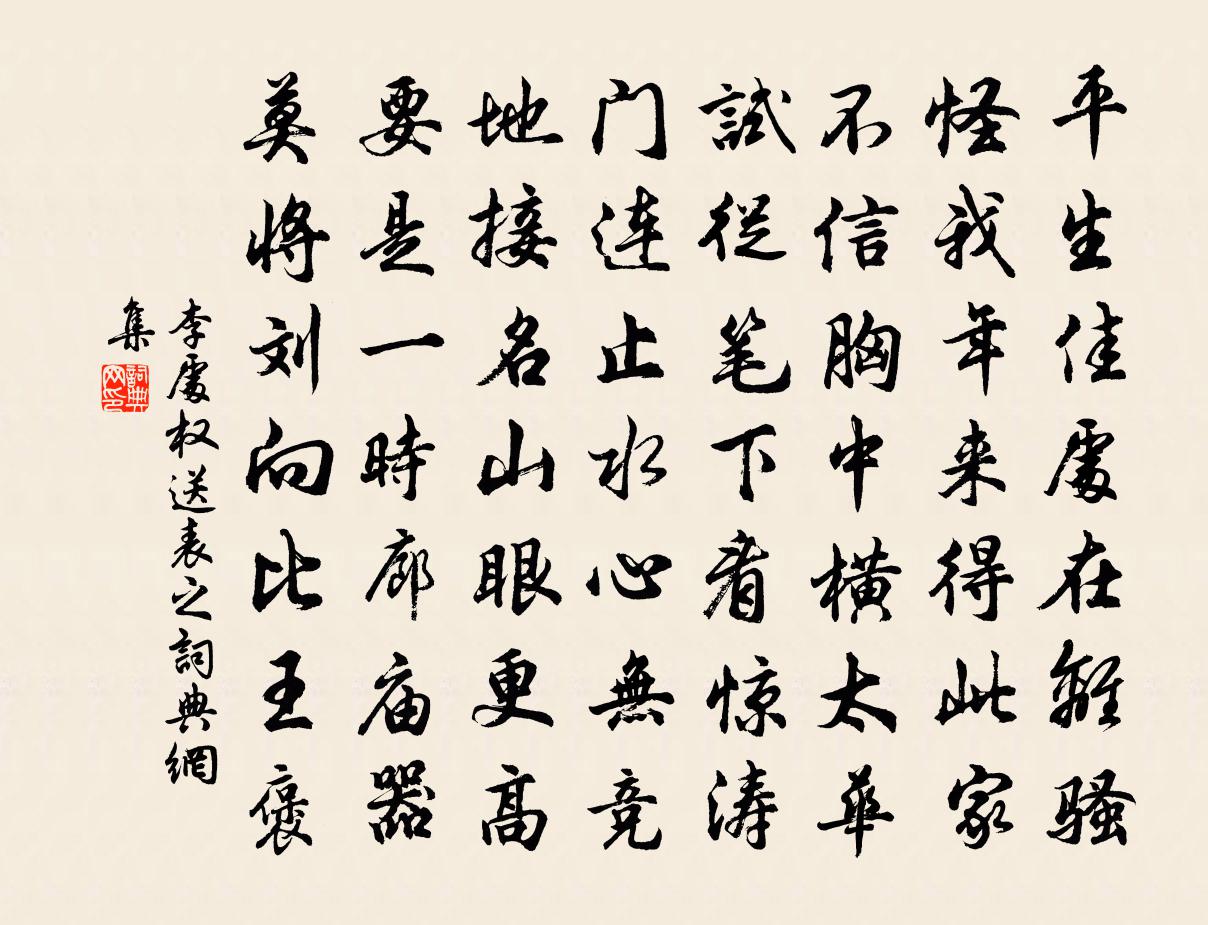 平生佳處在離騷
怪我年来得此家
不信胸中横太華
試從笔下看惊涛
门連止水心無竞
地接名山眼更高
要是一時廊庙器
莫将刘向比王褒
李處权送表之詞典網
集
詞典网印